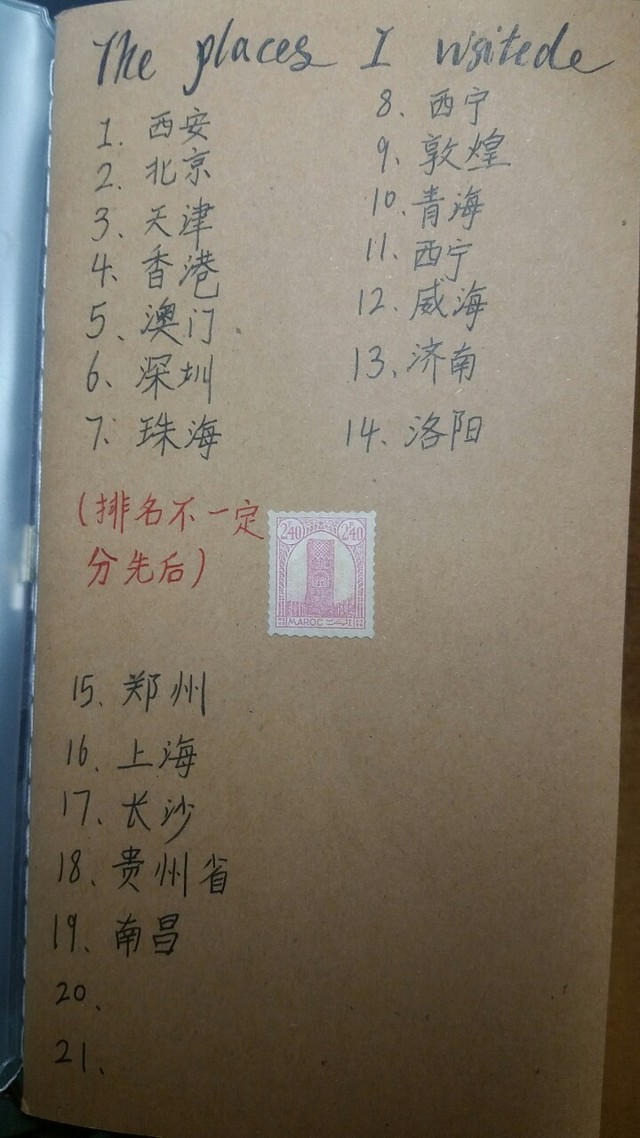 The places I wsitede
1. 西安
2. 北京
3、天津
4、香港
5、澳门
6、深圳
7、珠海
8、西宁
9、敦煌
10、青海
11、西宁
12、威海
13、济南
14、洛阳
(排名不一定
分先后)
2f40 2f40
MAROC
15、郑州
16、上海
17、长沙
18、贵州省
19、南昌
20、
21、